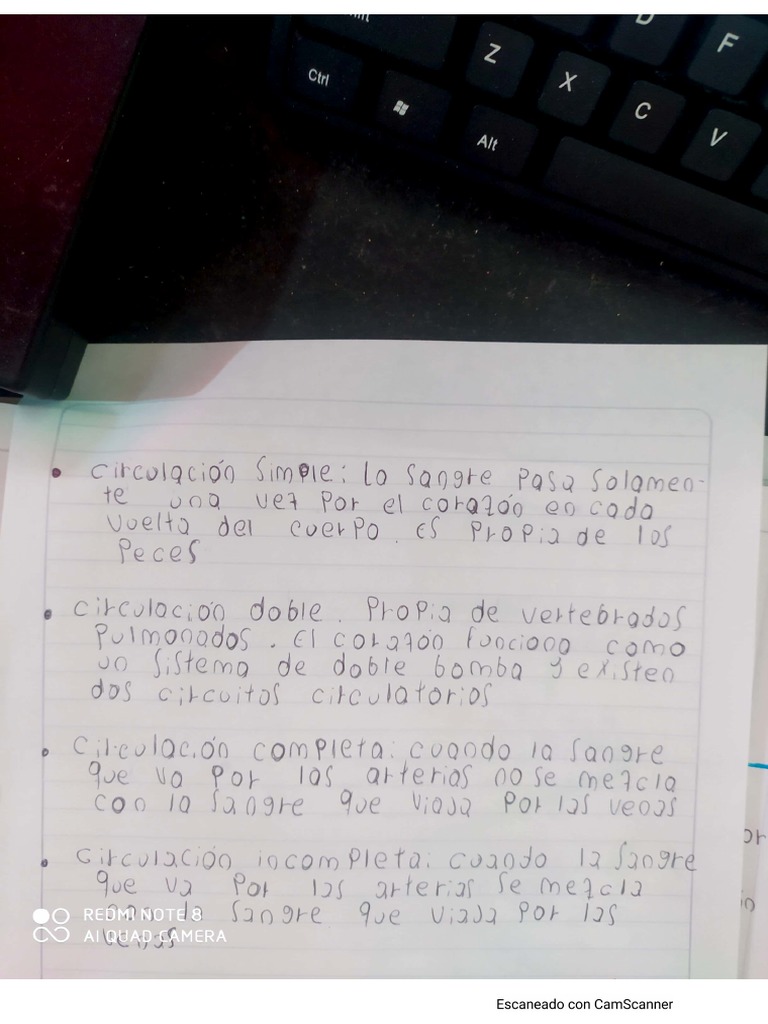 Z
D
F
Ctrl
X
C
Alt
V
• circulación simple: la sangre pasa solamen-
te una vez por el corazón en cada
vuelta del cuerpo. Es propia de los
peces
• circulación doble. Propia de vertebrados
pulmonados. El corazón funciona como
un sistema de doble bomba y existen
dos circuitos circulatorios
• circulación completa: cuando la sangre
que va por las arterias no se mezcla
con la sangre que viaja por las venas
• circulación incompleta: cuando la sangre
que va por las arterias se mezcla
sangre que viaja por las
venas
REDMI NOTE 8
AI QUAD CAMERA
Escaneado con CamScanner